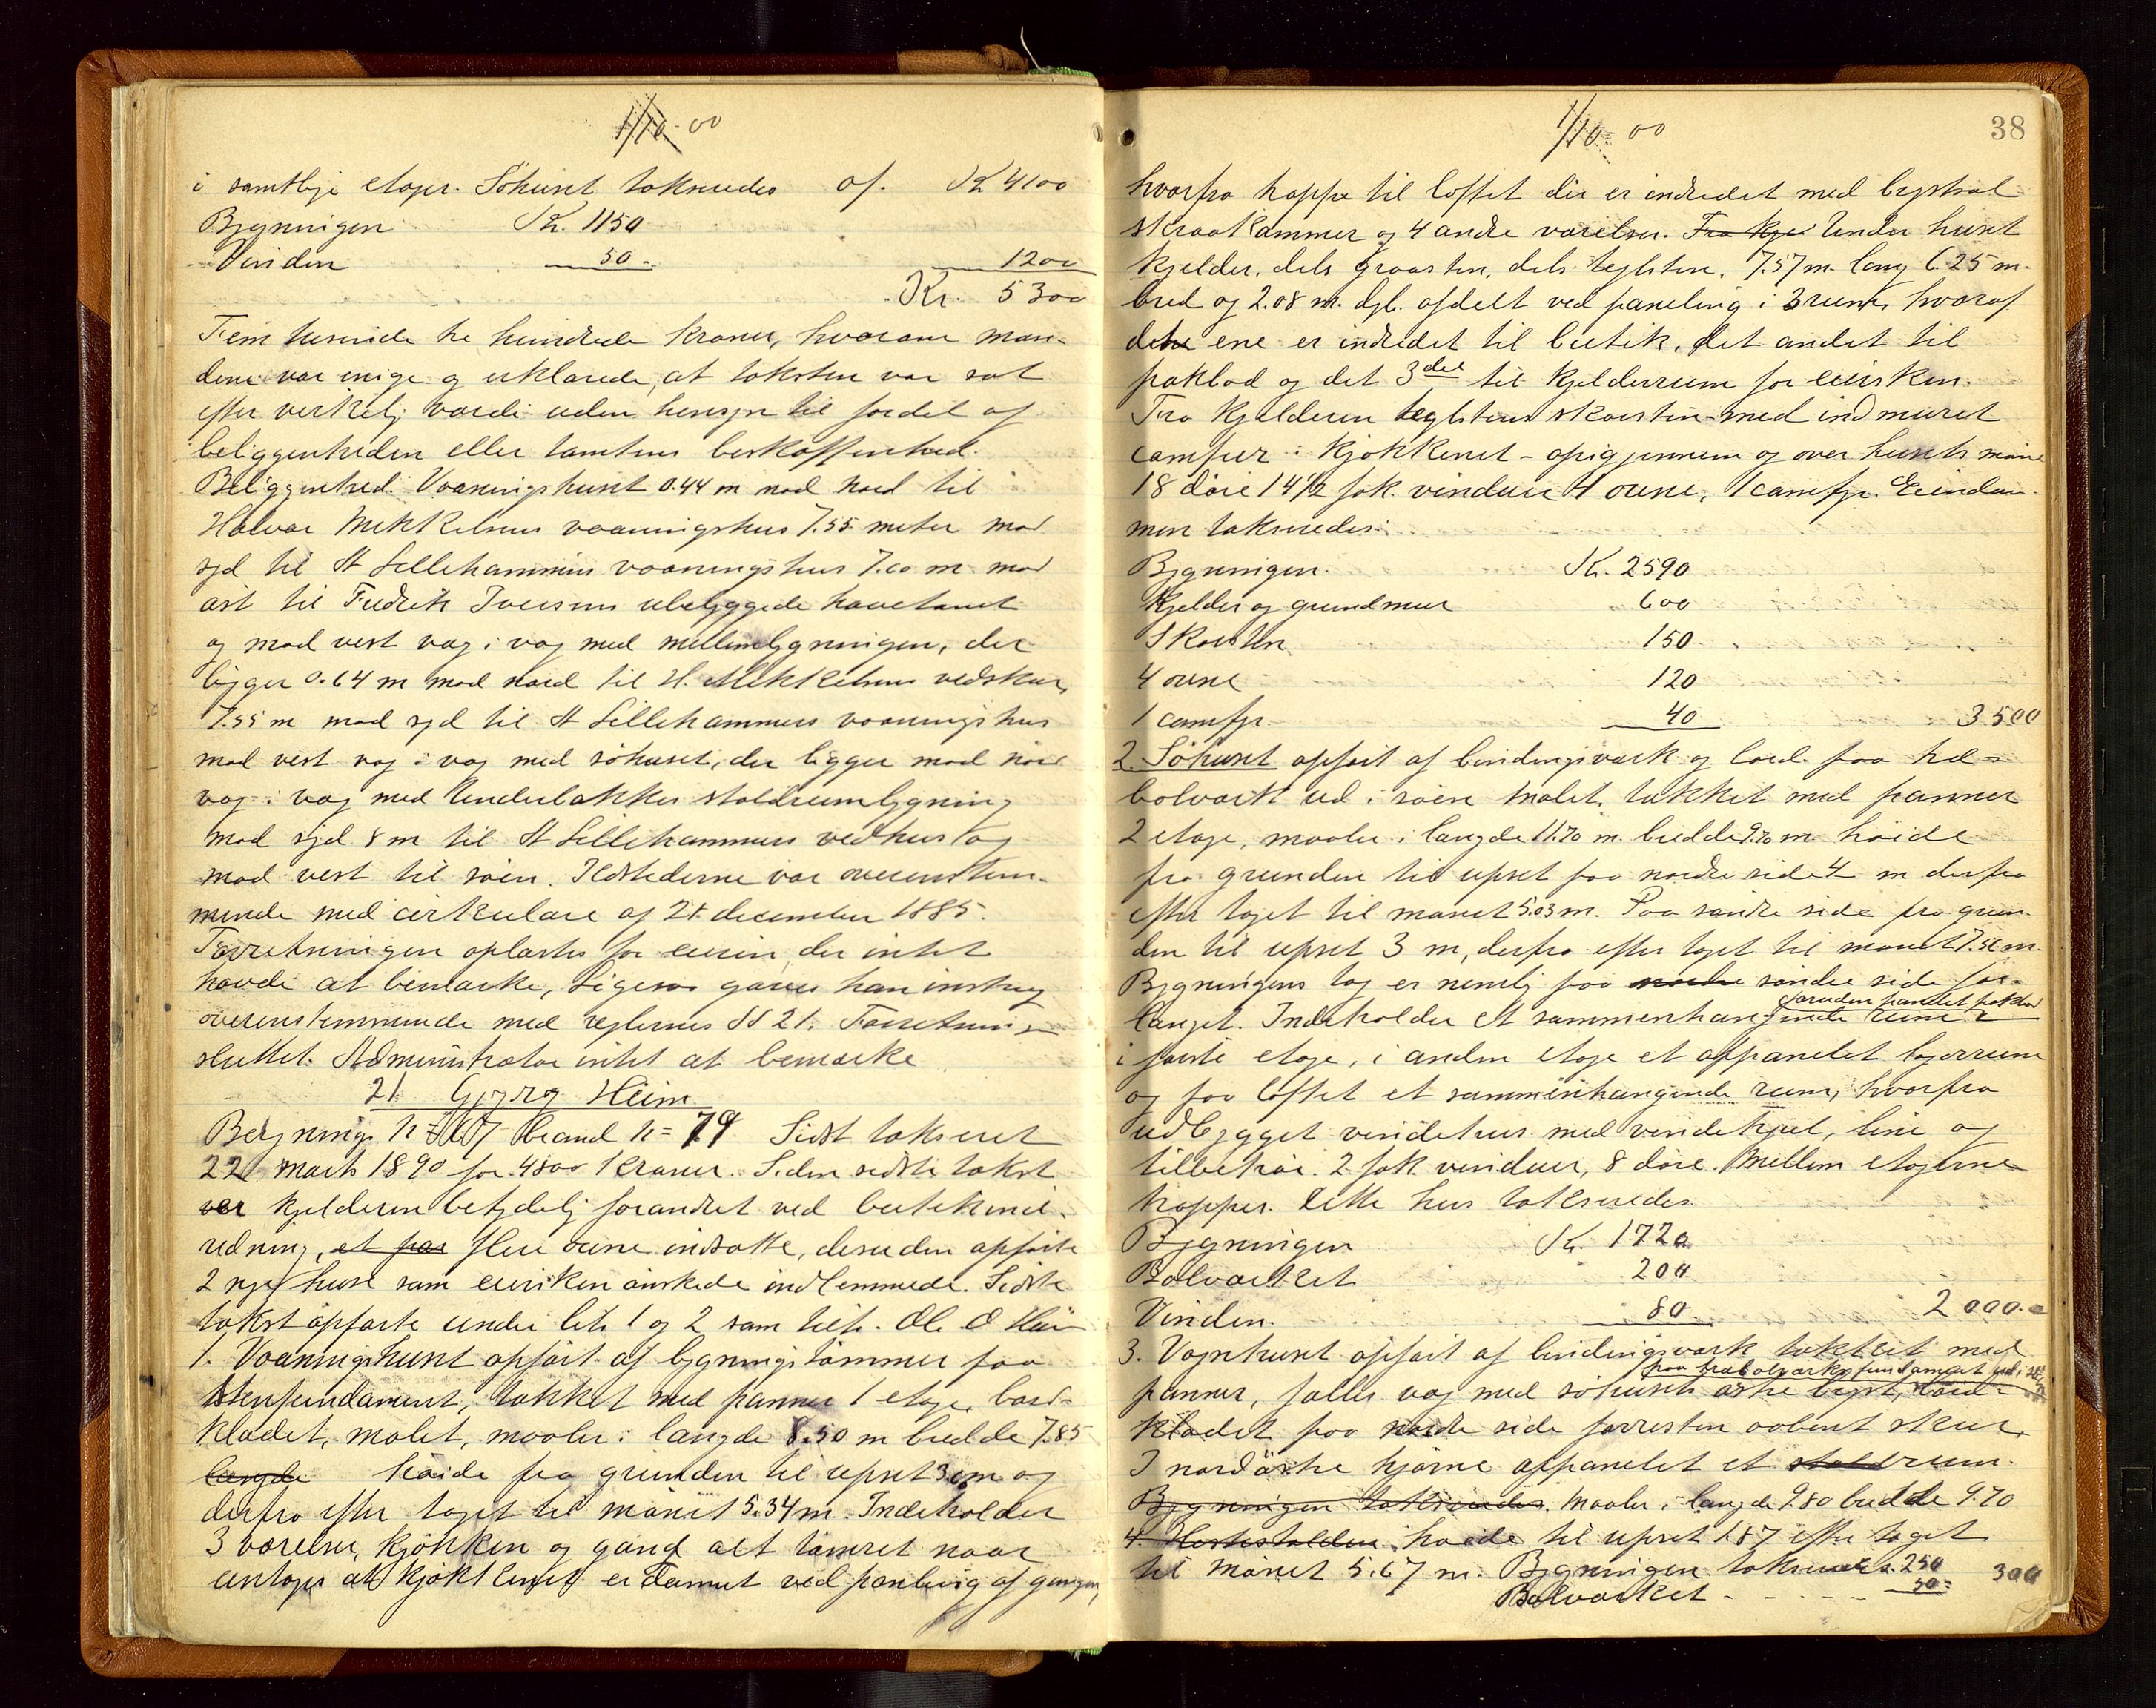 1/10-00
i samtlige etager. Söhuset takseredes af. Kr 4100
Bygningen Kr. 1150
Vinden 50- 1200
Kr. 5300
Fem tusende tre hundrede kroner, hvorom mæn-
dene var enige og erklærede, at taksten var sat
efter virkelig værdi uden hensyn til fordel af
beliggenheden eller tomtens beskaffenhed.
Beliggenhed. Vaaningshuset 0.44 m mod nord til
Halvor Mekkelsens vaaningshus 7.55 meter mod
syd til A Lillehammers vaaningshus 7.60 m mod
øst til Fredrik Iversens ubebyggede havetomt
og mod vest væg i væg med mellembygningen, der
ligger 0.64 m mod nord til H. Mekkelsens vedskur,
7.55 m mod syd til A Lillehammers vaaningshus
mod vest væg i væg med söhuset, der ligger mod nord
væg i væg med Underbakkes staldrumbygning
mod syd 8 m til A Lillehammers vedhus og
mod vest til söen. Ildstederne var overenstem-
mende med cirkulære af 21 december 1885.
Forretningen oplæstes for eieren, der intet
havde at bemærke, Ligesaa gaves han instrux
overenstemmende med reglernes §§ 21. Forretningen
sluttet. Administrator intet at bemærke
21 Georg Heim
Bygnings n= 107 brand n= 79 Sidst takseret
22 marts 1890 for 4800 kroner. Siden sidste takst
var kjelderen betydelig forandret ved butikind-
redning, et par flere ovne indsatte, desuden opførte
2 nye huse som eieren önskede indlemmede. Sidste
takst opførte under litr 1 og 2 som tilh. Ole O Heim
1. Vaaningshuset opført af bygningstömmer paa
stenfundament, tækket med panner 1 etage, bord-
klædet, malet, maaler i længde 8.50 m bredde 7.85
længde höide fra grunden til upset 3 m og
derfra efter taget til mönet 5.34 m. Indeholder
3 værelser, kjökken og gang alt tömret naar
undtages at kjökkenet er dannet ved paneling af gangen,
1/10-00
38
hvorfra trappe til loftet der er indredet med
skraakammer og 4 andre værelser. Fra kje Under huset
kjelder, dels graasten, dels teglsten, 7.57 m. lang 6.25 m.
bred og 2.08 m. dyb. afdelt ved paneling i 3 rum, hvoraf
det ene er indredet til butik, det andet til
pakbod og det 3die til kjelderrum for eieren.
Fra kjelderen teglstens skorsten med indmuret
comfur i kjökkenet - opigjennem og over husets möne
18 döre 14 1/2 fak. vinduer 4 ovne, 1 comfyr. Eiendom-
men takseredes:
Bygningen. Kr. 2590
Kjelder og grundmur 600
Skorsten 150
4 ovne 120
1 comfyr. 40 3500
2. Söhuset opført af bindingsværk og bord. paa træ-
bolværk ud i söen malet, tækket med panner
2 etage, maaler i længde 11.70 m. bredde 9.70 m. höide
fra grunden til upset paa nordre side 4 m derfra
efter taget til mönet 5.03 m. Paa söndre side fra grun-
den til upset 3 m, derfra efter taget til mönet 7.56 m.
Bygningens tag er nemlig paa nordre söndre side for-
foruden panelet pakbod
længet. Indeholder et sammenhængende rum
i förste etage, i anden etage et afpanelet lagerrum
og paa loftet et sammenhængende rum, hvorfra
udbygget vindehus med vindehjul, line og
tilbehör. 2 fak. vinduer, 8 döre. Mellem etagerne
trapper. Dette hus takseredes
Bygningen Kr. 1720
Bolværket 200
Vinden. 80 2000.-
3. Vognhuset opført af bindingsværk tækket med
paa træbolværks fundament ud i sö
panner, fælles væg med söhusets östre
klædet paa nordre side forresten aabent skur.
I nordöstre hjörne afpanelet et staldrum.
Bygningen takseredes. Maaler i længde 9.80 bredde 9.70
4. Hestestalden. höide til upset 1.87 efter taget
til mönet 5.67 m. Bygningen takseres. 250 300
Bolværket - 50=